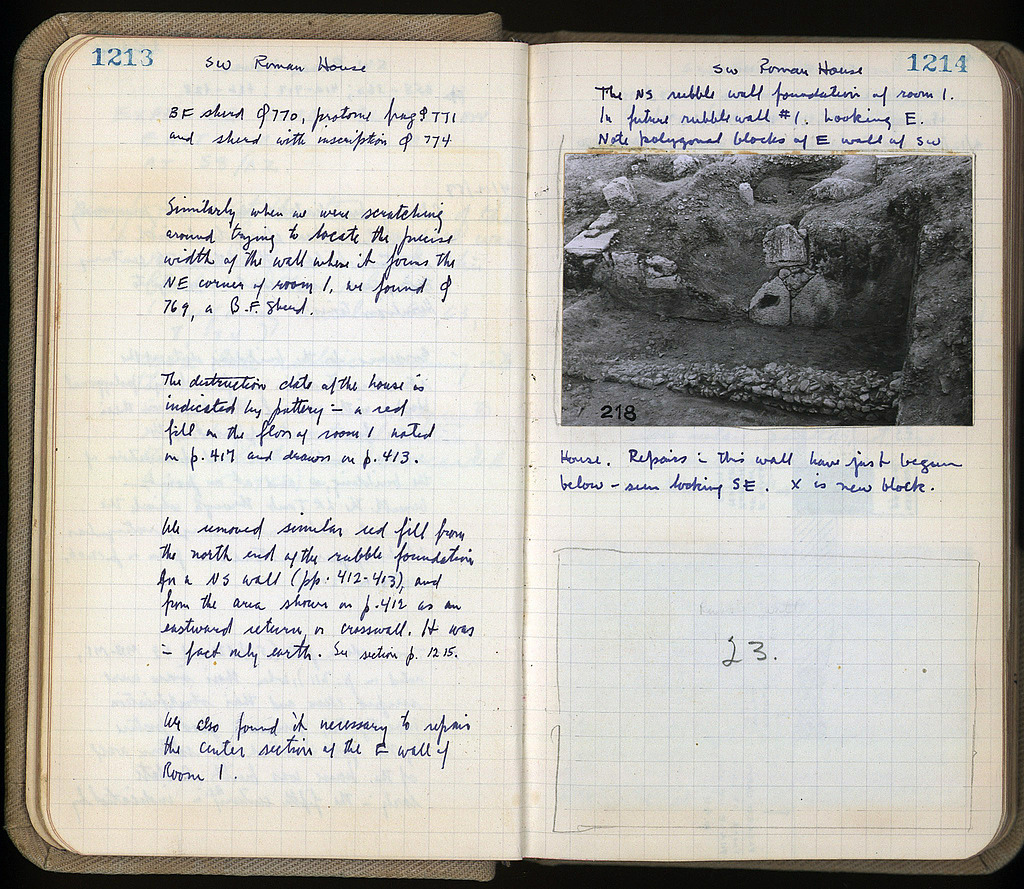 1213
SW Roman House
BF sherd φ 770, protome frag φ 771
and sherd with inscription φ 774
Similarly when we were scratching
around trying to locate the precise
width of the wall where it forms the
NE corner of room 1, we found φ
769, a B.F. Sherd.
The destruction date of the house is
indicated by pottery in a red
fill on the floor of room 1 noted
on p. 417 and drawn on p. 413.
We removed similar red fill from
the north end of the rubble foundation
for a NS wall (pp. 412-413), and
from the area shown on p. 412 as an
eastward return, or crosswall. It was
in fact only earth. See section p. 1215.
We also found it necessary to repair
the center section of the E wall of
Room 1.
1214
SW Roman House
The NS rubble wall foundation of room 1.
In future rubble wall #1. Looking E.
Note polygonal blocks of E wall of SW
218
House. Repairs in this wall have just begun
below - seen looking SE. X is new block.
23.